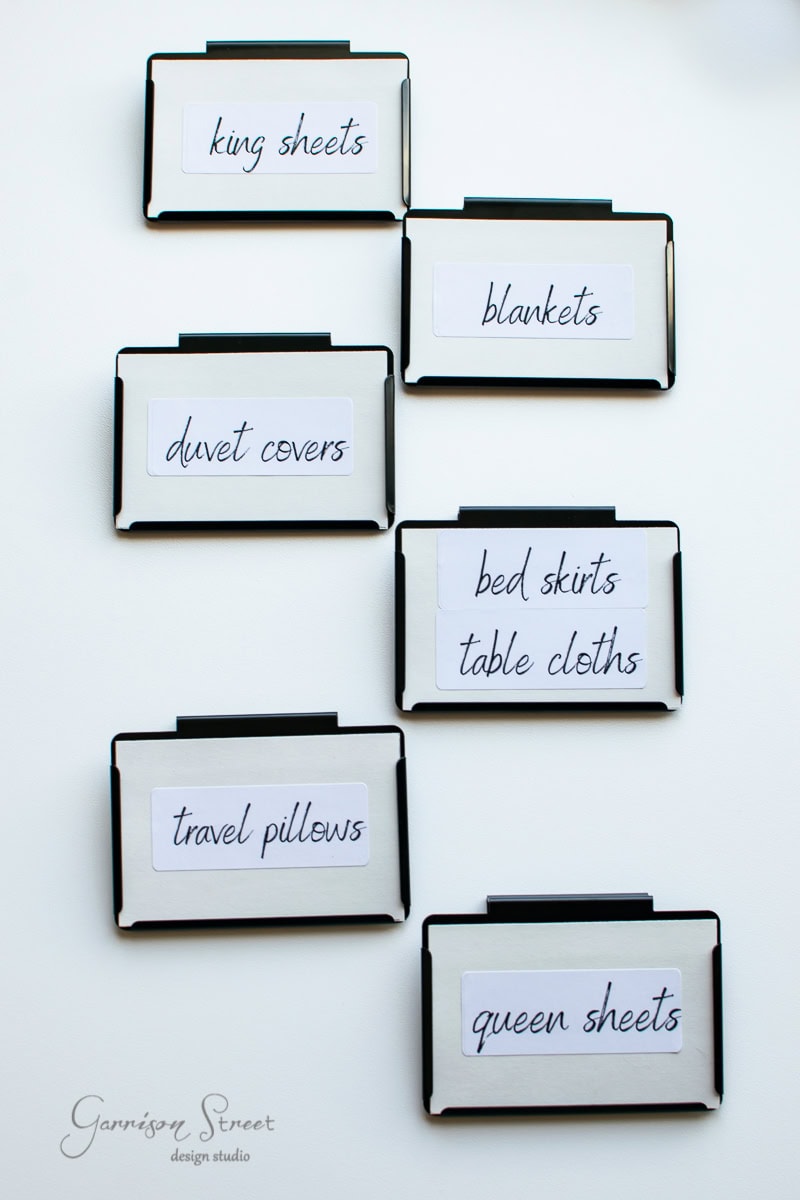 king sheets
blankets
duvet covers
bed skirts
table cloths
travel pillows
queen sheets
Garrison Street
design studio